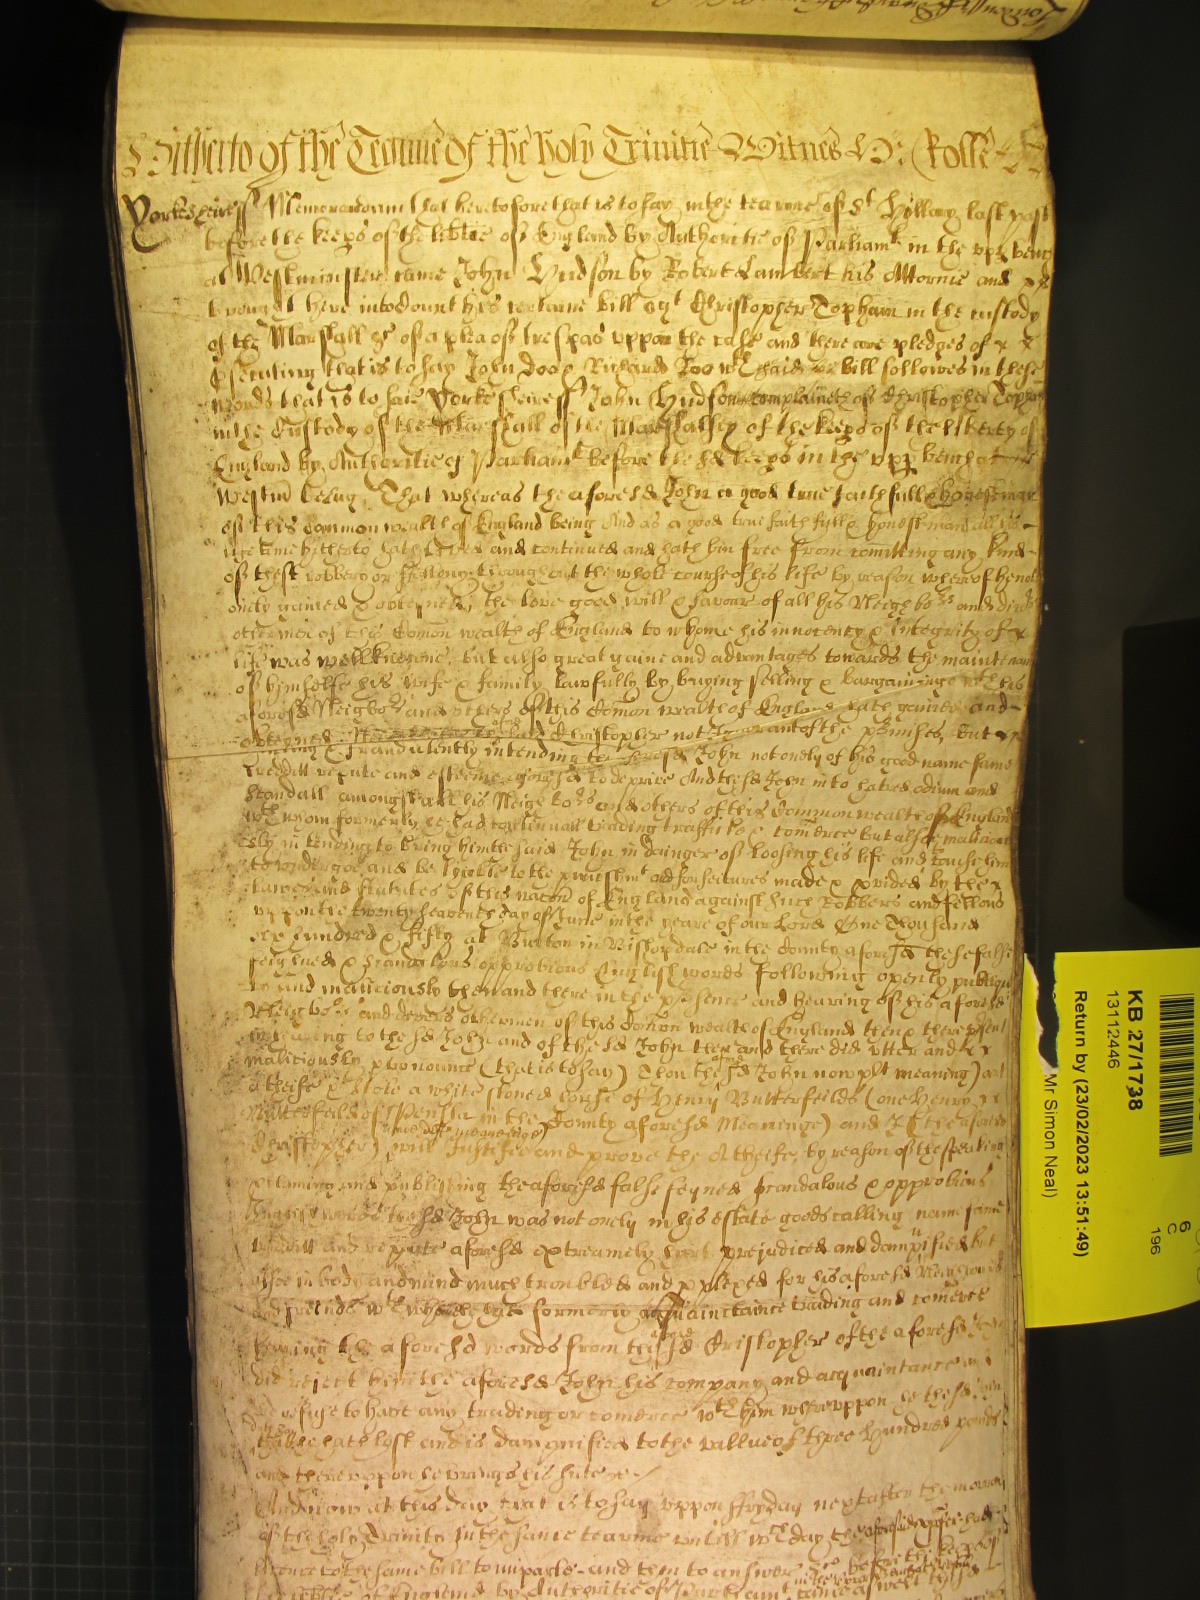 Hitherto of the Tearme of the holy Trinitie Witnes H: Rolle
Yorkesheire ss Memorandum that heretofore that is to say in the tearme of St Hillary last past
before the keeps of the libtie of England by Authoritie of Parliamt in the upp bench
at Westminster came John Hudson by Robert Lambert his Attornie and
brought here into Court his certaine bill agt Christopher Topham in the custody
of the Marshall &c of a plea of trespas uppon the case and there are pledges of
psecuting that is to say John Doo & Richard Roo wch said bill followes in these
words that is to saie Yorkesheire ss John Hudson complaineth of Christopher Topham
in the Custody of the Marshall of the Marshalsey of the keeps of the liberty of
England by Authoritie of Parliamt before the sd keeps in the upp bench at
Westmr being, That whereas the aforesd John a good true faithfull & honest man
of this common wealth of England being And as a good true faithfull & honest man all his
life time hitherto hath lived and continued and hath bin free from comitting any kind
of theft robbery or fellony throughout the whole course of his life by reason whereof he not
onely gained & obteyned the love good will & favour of all his Neighbors and divs
other men of this Comon wealth of England to whome his innocency & Integrity of
life was well knowne, but also great gaine and advantages towards the maintenance
of himselfe his wife & family lawfully by buying selling & bargaininge wth his
aforesd Neigbors and others of this Comon wealth of England hath gained and
obteyned Christopher not Ignorant of the pmises, but
& fraudulently intending the aforesd John not onely of his good name fame
creditt repute and esteeme aforesd to deprive And the sd John into hatred odium and
scandall amongst all his Neigbors and others of this Common wealth of England
wth whom formerly he had continuall trading traffick & comerce but also malicious
sly intending to bring him the said John in dainger of loosing his life and cause him
to undergoe and be lyable to the punishmt and forfeitures made & pvided by the
lawes and statutes of this nacon of England against such Robbers and fellons
uppon the twenty seaventh day of June in the yeare of our Lord One Thousand
six hundred & fifty at Burton in Bishopdale in the County aforesd these false
feighned & scandalous opprobrious English words following openly publiqu
ly and maliciously then and there in the psence and hearing of his aforesd
Neigbors and divers other men of this Comon wealth of England then & there psent
speaking to the sd John and of the sd John then and there did utter and
maliciously pronounce (that is to say) Thou (the aforesd John now plt meaning) art
a theife & stole a white stoned horse of Henry Butterfeilds (one Henry
Butterfeild of in the County aforesd Meaninge) and I (the aforesd
Christopher himselfe meaninge) will Justifie and prove thee A theife, by reason of the speaking
pclaiming and publishing the aforesd false feyned scandalous & opprobrious
English words the sd John was not onely in his estate goods calling name fame
creditt and repute aforesd extreamely hurt prejudiced and damnified but
also in body and mind much troubled and pplexed for his aforesd Neighbours
and freinds wth whom he had formerly acquaintance trading and comerce
hearing the aforesd words from the aforesd Cristopher of the aforesd John
did reject him the aforesd John his company and acquaintance and
did refuse to have any trading or comerce wth him whereuppon he the sd John
saith he hath lost and is damnified to the vallue of three Hundred pounds
and thereuppon he brings his suite &c
And now at this day that is to say uppon ffryday next after the morrow
of the holy Trinity In the same tearme untill wch day the aforesaid Cristopher had
licence to the same bill to imparle and then to answer &c before the keeps of
the libtie of England by Authoritie of Parliamt came aswell the sd
KB 27/1738
13112446
Return by (23/02/2023 13:51:49)
Mr Simon Neal)
6
C
196